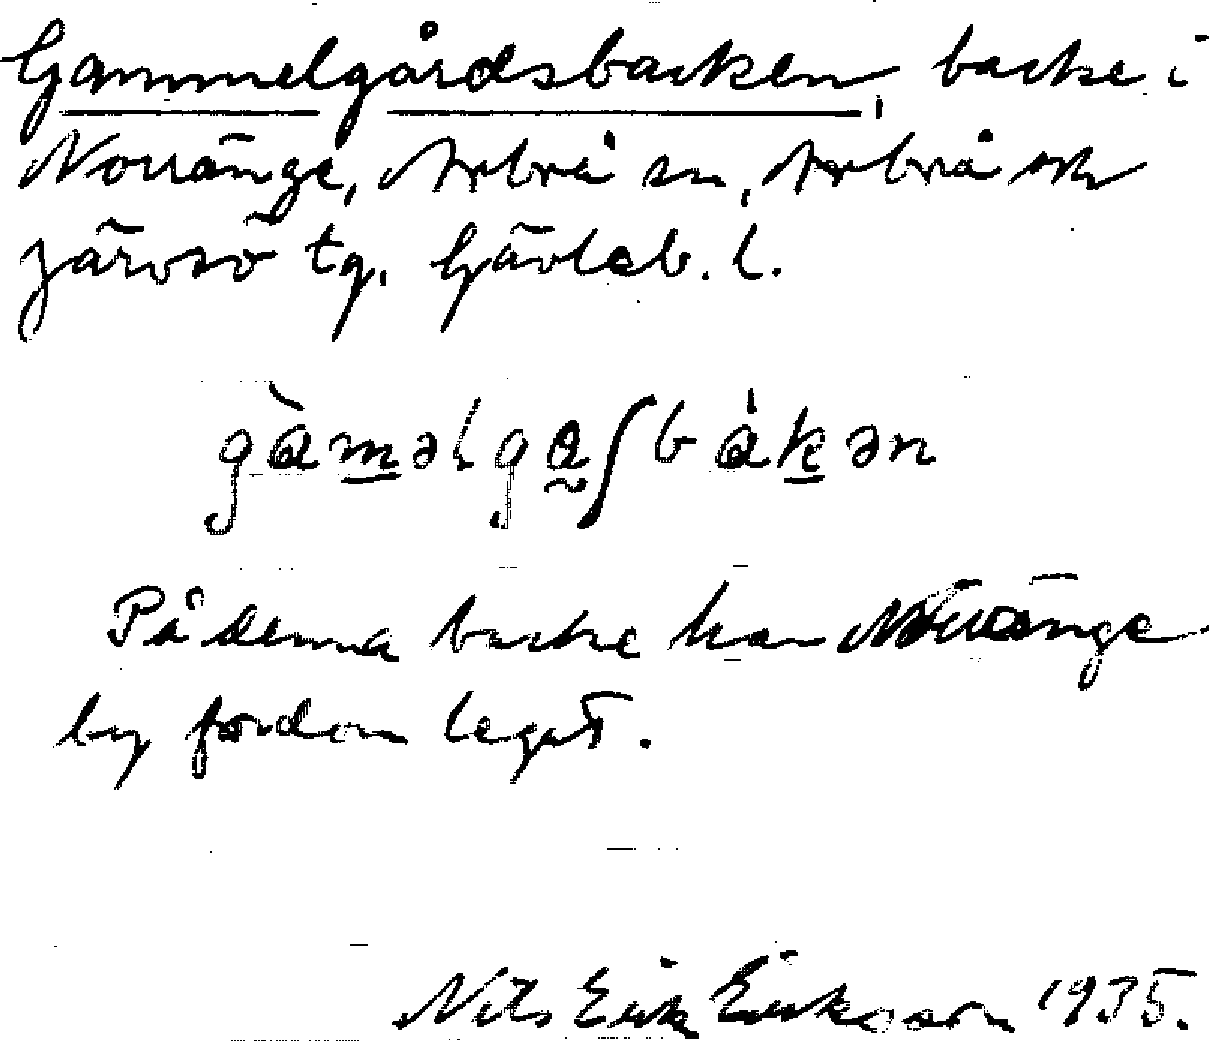 Gammelgårdsbacken, backe i
Norränge, Arbrå sn, Arbrå och
Järvsö tg. Gävleb. l.
gàməlga̰ʃbàkən
På denna backe har Norränge
by fordom legat.
Nils Erik Eriksson 1935.